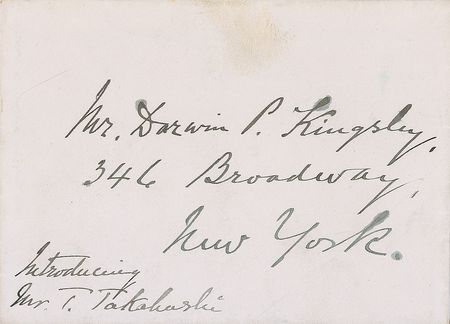 Mr. Darwin P. Kingsley,
346 Broadway,
New York.
Introducing
Mr. T. Takahashi